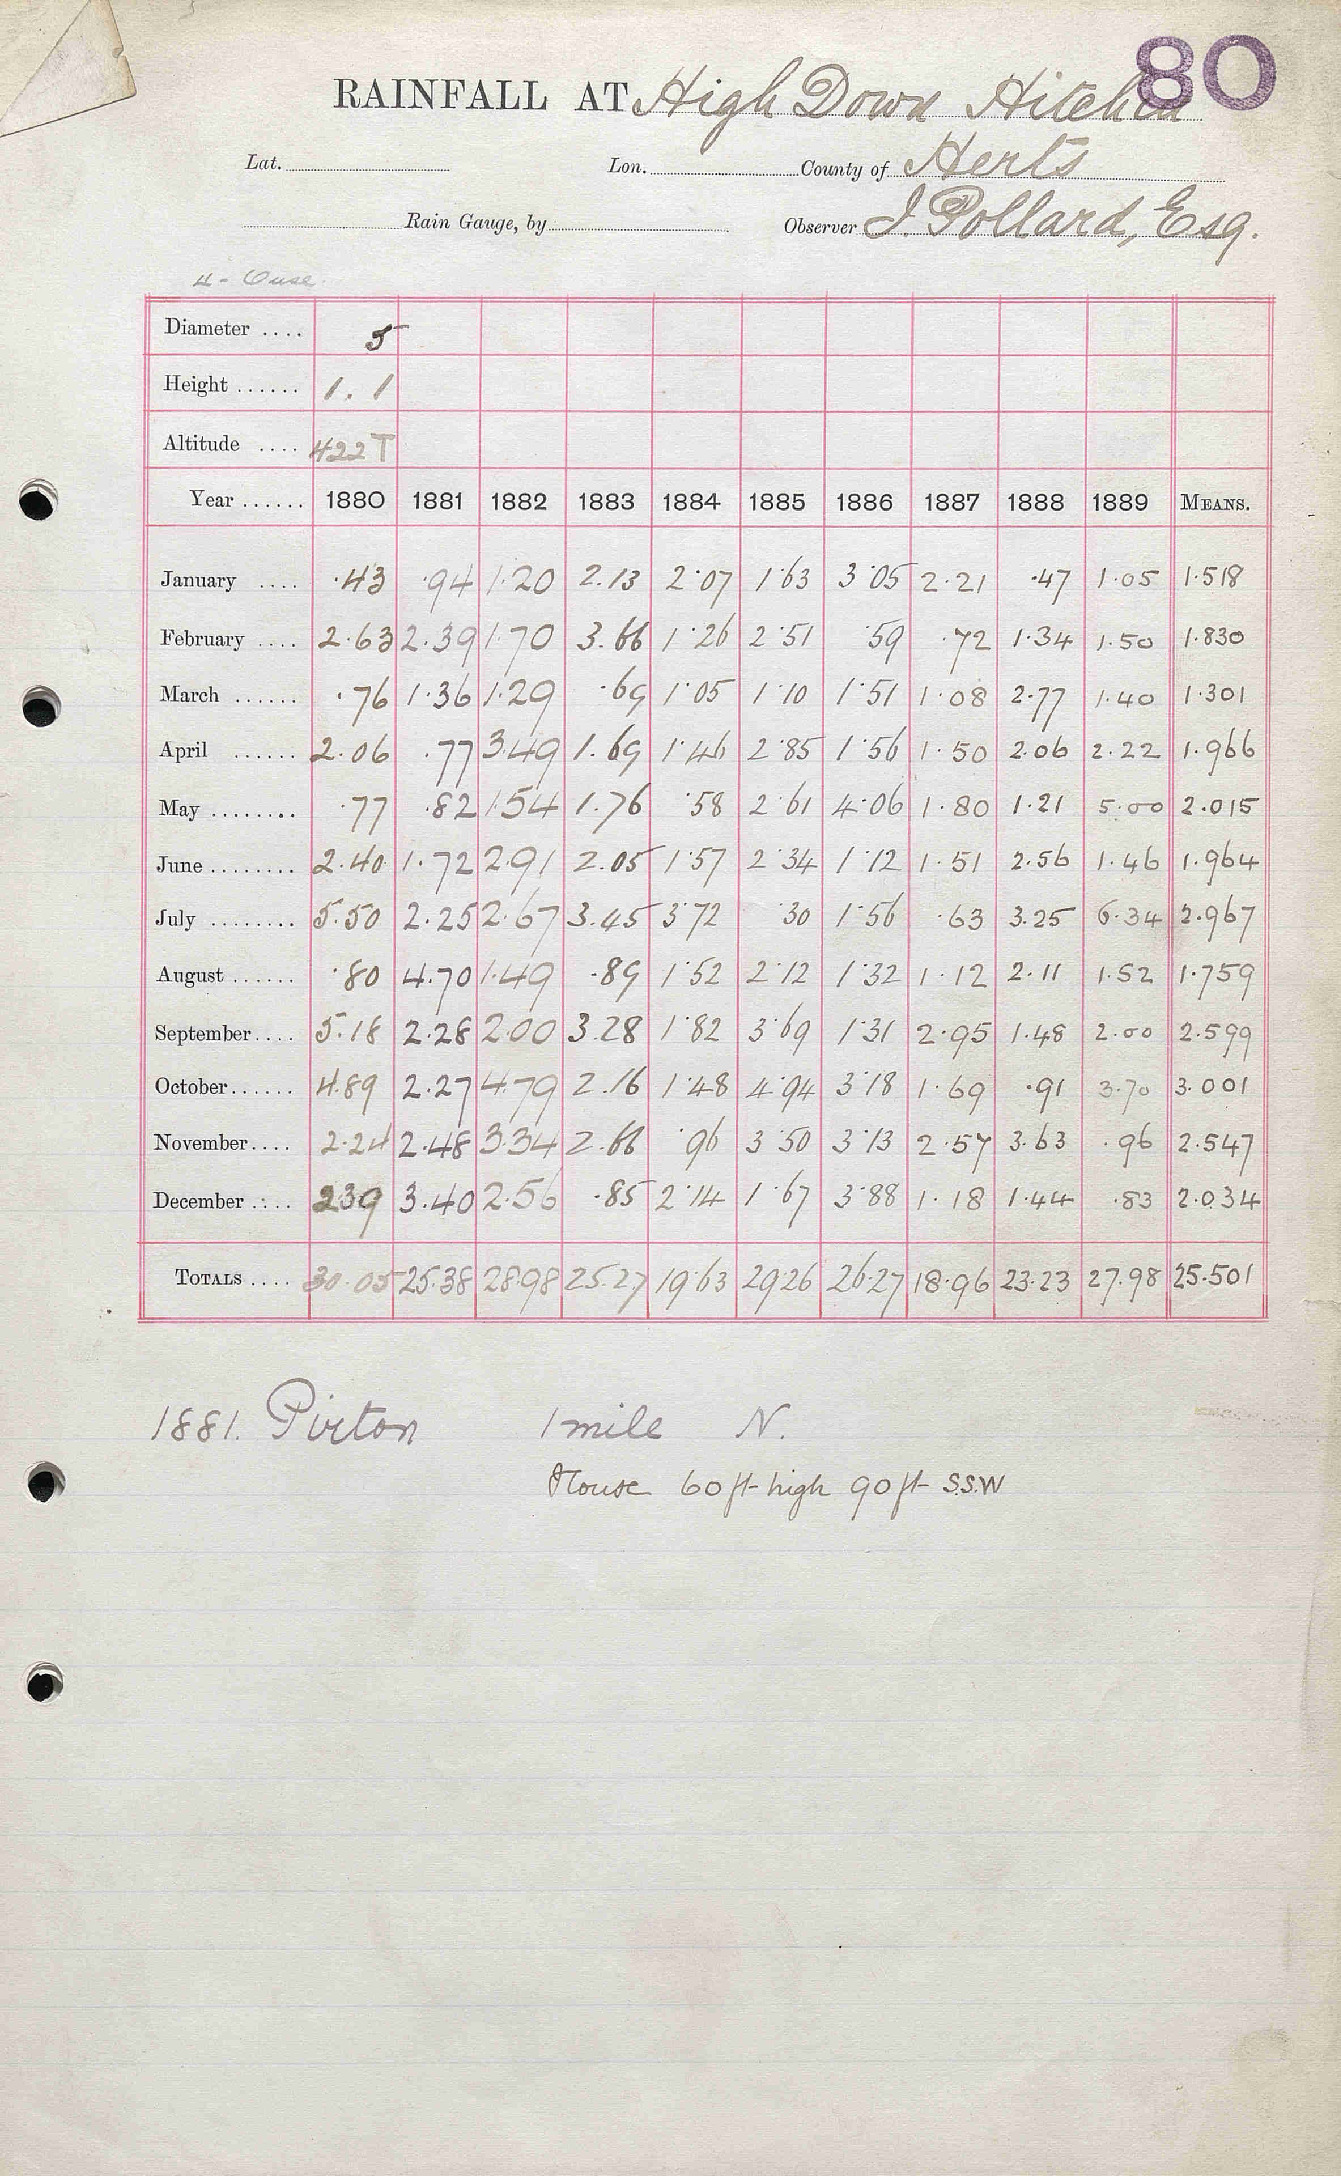 80
RAINFALL AT High Down Hitchin
Lat. Lon. County of Herts
Rain Gauge, by Observer J. Pollard, Esq.
4 - Ouse.
Diameter .... 5
Height ...... 1.1
Altitude .... 422 T
Year ...... 1880 1881 1882 1883 1884 1885 1886 1887 1888 1889 MEANS.
January .... .43 .94 1.20 2.13 2.07 1.63 3.05 2.21 .47 1.05 1.518
February .... 2.63 2.39 1.70 3.66 1.26 2.51 .59 .72 1.34 1.50 1.830
March ...... .76 1.36 1.29 .69 1.05 1.10 1.51 1.08 2.77 1.40 1.301
April ...... 2.06 .77 3.49 1.69 1.46 2.85 1.56 1.50 2.06 2.22 1.966
May ........ .77 .82 1.54 1.76 .58 2.61 4.06 1.80 1.21 5.00 2.015
June ........ 2.40 1.72 2.91 2.05 1.57 2.34 1.12 1.51 2.56 1.46 1.964
July ........ 5.50 2.25 2.67 3.45 3.72 .30 1.56 .63 3.25 6.34 2.967
August ...... .80 4.70 1.49 .89 1.52 2.12 1.32 1.12 2.11 1.52 1.759
September .... 5.18 2.28 2.00 3.28 1.82 3.69 1.31 2.95 1.48 2.00 2.599
October ...... 4.89 2.27 4.79 2.16 1.48 4.94 3.18 1.69 .91 3.70 3.001
November .... 2.24 2.48 3.34 2.66 .96 3.50 3.13 2.57 3.63 .96 2.547
December .... 2.39 3.40 2.56 .85 2.14 1.67 3.88 1.18 1.44 .83 2.034
TOTALS .... 30.05 25.38 28.98 25.27 19.63 29.26 26.27 18.96 23.23 27.98 25.501
1881. Pirton 1 mile N.
House 60 ft high 90 ft S.S.W